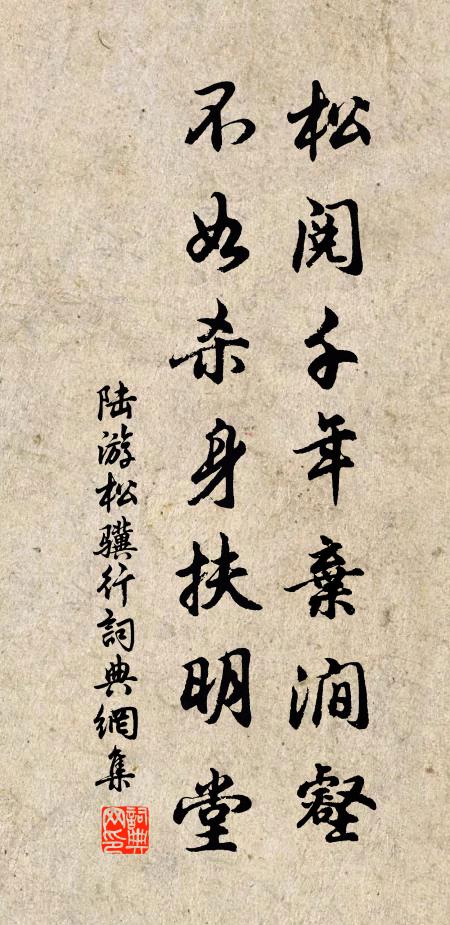 松阅千年棄澗壑
不如杀身扶明堂
陆游松驥行詞典網集
詞典网印